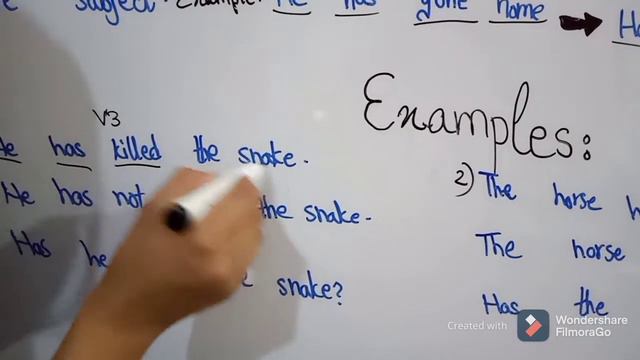 subject. Example: He has gone home
Examples:
V3
He has killed the snake.
He has not the snake.
Has he snake?
2) The horse
The horse
Has the
Created with Wondershare FilmoraGo